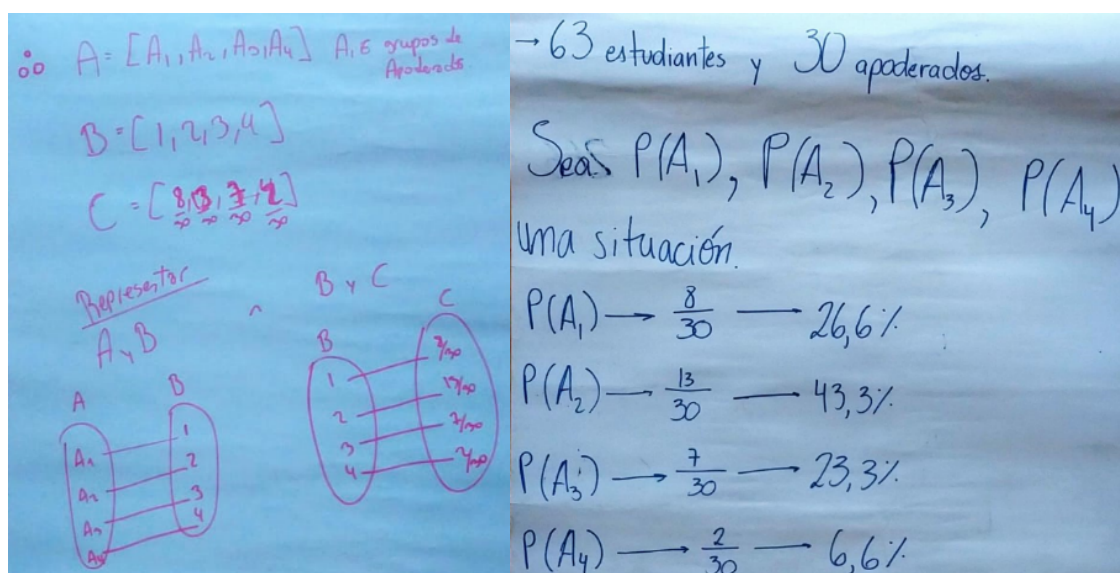 ∴ A = [A₁, A₂, A₃, A₄] A₁ ∈ grupos de
Apoderado.
B = [1, 2, 3, 4]
C = [8/30, 13/30, 7/30, 2/30]
Representar
A y B
A B
A₁ 1
A₂ 2
A₃ 3
A₄ 4
B y C
B C
1 8/30
2 13/30
3 7/30
4 2/30
→ 63 estudiantes y 30 apoderados.
Seas P(A₁), P(A₂), P(A₃), P(A₄)
una situación.
P(A₁) → 8/30 — 26,6%
P(A₂) → 13/30 — 43,3%
P(A₃) → 7/30 — 23,3%
P(A₄) → 2/30 — 6,6%